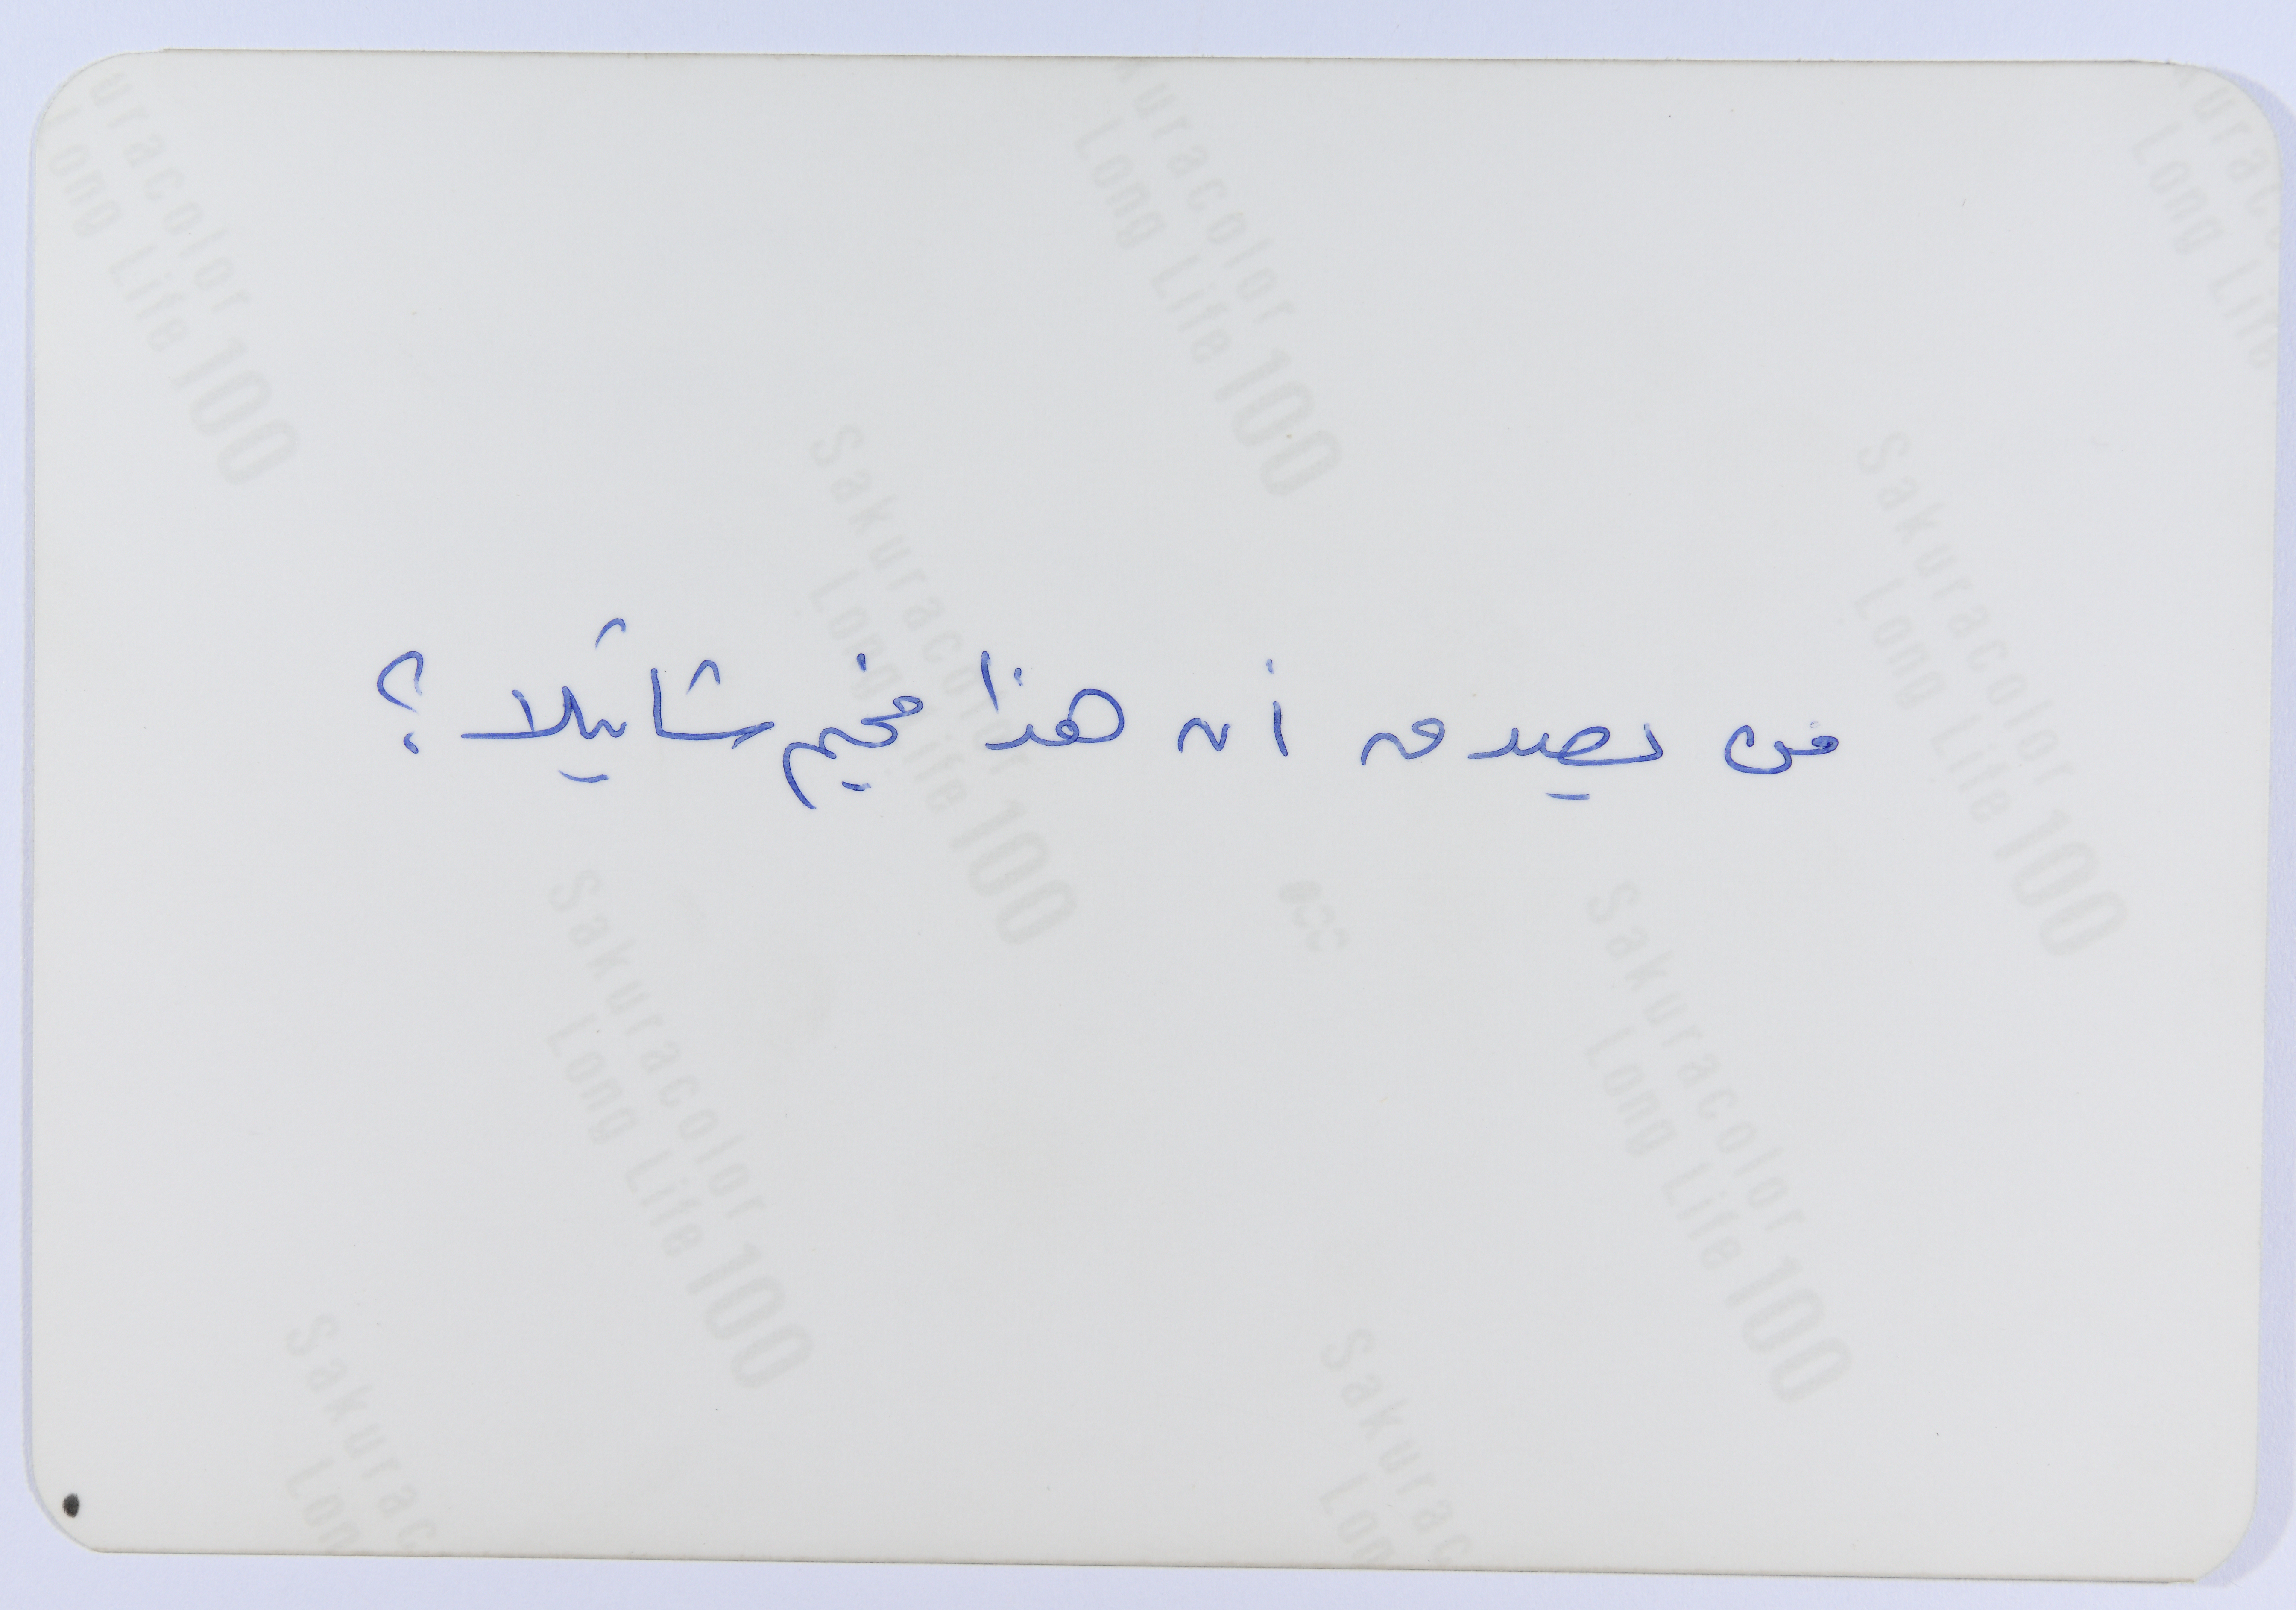 من يصدق أن هذا مخيم شاتيلا؟
uracolor
Long Life 100
kuracolor
Long Life 100
urac
Long Life
Sakuracolor
Long Life 100
Sakuracolor
Long Life 100
Sakuracolor
Long Life 100
Sakuracolor
Long Life 100
Sakurac
Lon
Sakurac
Lon